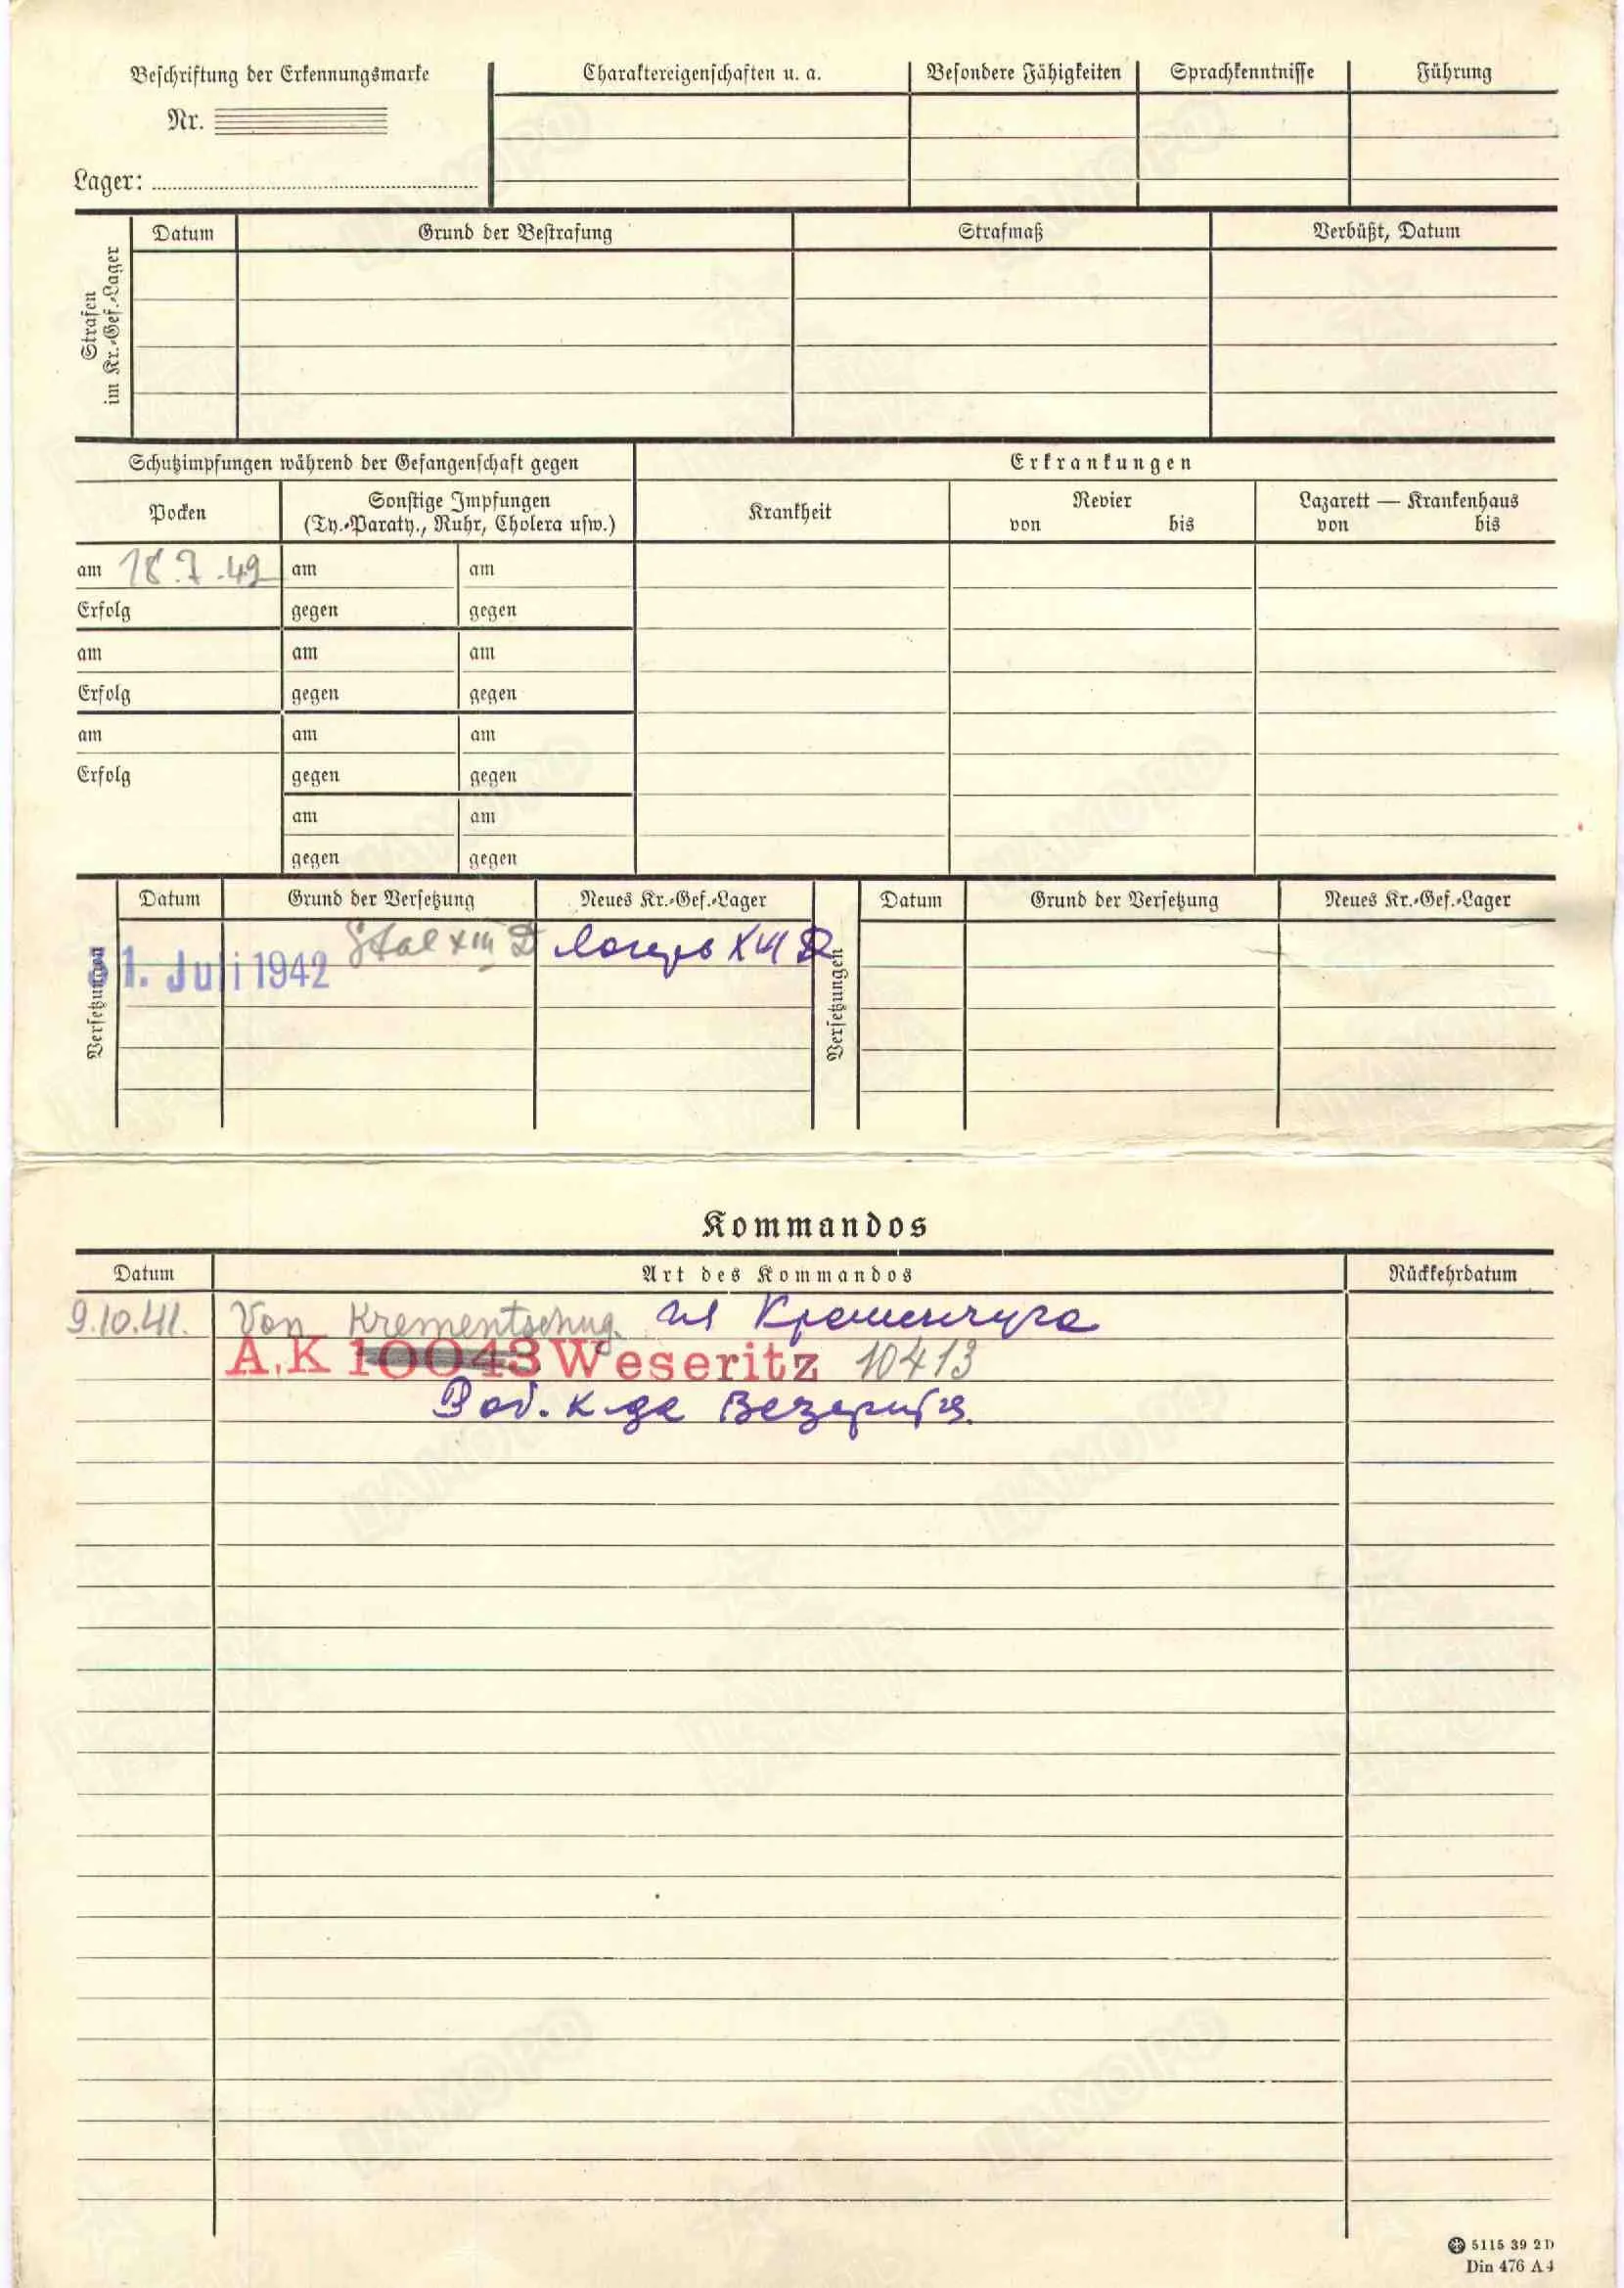 Beschriftung der Erkennungsmarke
Nr.
Lager:
Charaktereigenschaften u. a.
Besondere Fähigkeiten
Sprachkenntnisse
Führung
Strafen im Kr.-Gef.-Lager
Datum
Grund der Bestrafung
Strafmaß
Verbüßt, Datum
Schutzimpfungen während der Gefangenschaft gegen
Erkrankungen
Pocken
Sonstige Impfungen
(Ty.-Paraty., Ruhr, Cholera usw.)
Krankheit
Revier
von bis
Lazarett — Krankenhaus
von bis
am 18.7.42 am am
Erfolg gegen gegen
am am am
Erfolg gegen gegen
am am am
Erfolg gegen gegen
am am
gegen gegen
Versetzungen
Datum Grund der Versetzung Neues Kr.-Gef.-Lager
Versetzungen
Datum Grund der Versetzung Neues Kr.-Gef.-Lager
Stal XIII D лагерь XIII D
1. Juli 1942
Kommandos
Datum Art des Kommandos Rückkehrdatum
9.10.41. Von Krementschug. из Кременчуга
A.K 10043 Weseritz 10413
Раб. к-да Везериц
5115 39 2D
Din 476 A 4